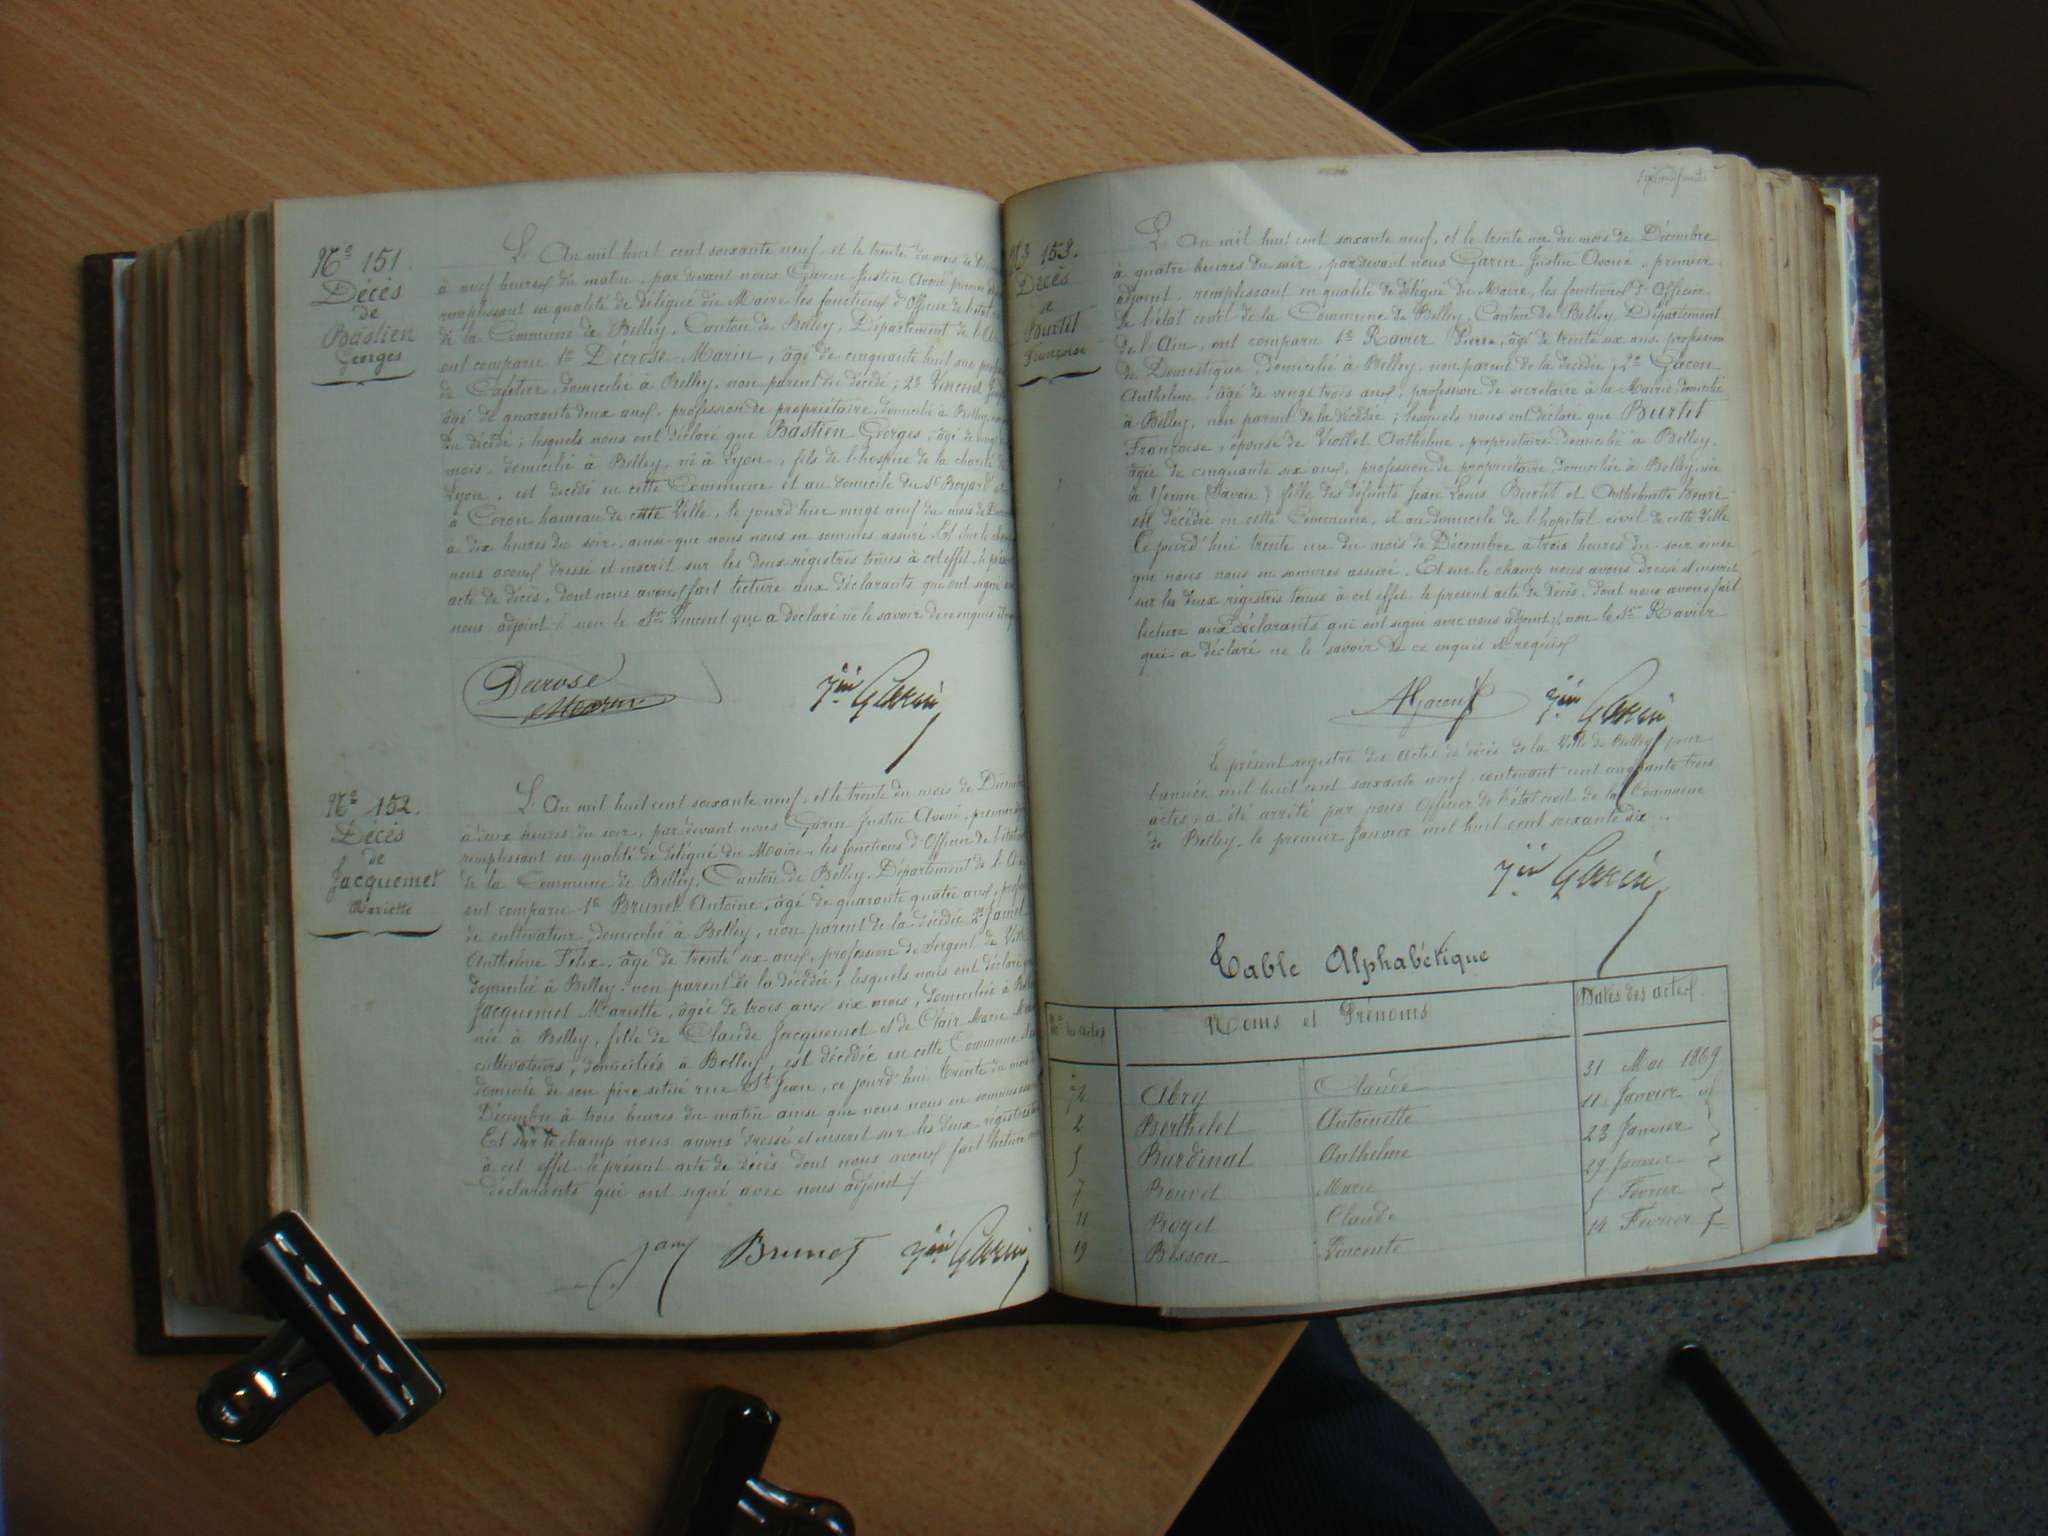 No 151.
Décès
de
Bastien
Georges
L'An mil huit cent soixante neuf, et le trente du mois de
à neuf heures du matin, par devant nous Garin Justin Avoué premier
remplissant en qualité de délégué du Maire les fonctions d'Officier de l'état
de la Commune de Belley, Canton de Belley, Département de l'Ain
ont comparu 1er Décrose Marin, âgé de cinquante huit ans
de Cafetier, domicilié à Belley, non parent du décédé; 2e Vincent
âgé de quarante deux ans, profession de propriétaire, domicilié à Belley
du décédé; lesquels nous ont déclaré que Bastien Georges, âgé de
mois, domicilié à Belley, né à Lyon, fils de l'hospice de la charité de
Lyon, est décédé en cette Commune et au domicile du Sr Boyard
à Coron hameau de cette Ville, le jourd'hui vingt neuf du mois de
à dix heures du soir, ainsi que nous nous en sommes assuré. Et sur le champ
nous avons dressé et inscrit sur les deux régistres tenus à cet effet, le présent
acte de décès, dont nous avons fait lecture aux déclarants qui ont signé
nous adjoint, non le Sr Vincent qui a déclaré ne le savoir de ce enquis
Decrose
Marin
Jin Garin
No 152.
Décès
de
Jacquemet
Mariette
L'An mil huit cent soixante neuf, et le trente du mois de Décembre
à deux heures du soir, par devant nous Garin Justin Avoué, premier
remplissant en qualité de délégué du Maire, les fonctions d'Officier de l'état
de la Commune de Belley, Canton de Belley, Département de l'Ain
ont comparu 1er Brunet Antoine, âgé de quarante quatre ans,
de cultivateur, domicilié à Belley, non parent de la décédée 2e
Anthelme Félix, âgé de trente six ans, profession de Sergent de Ville
domicilié à Belley, non parent de la décédée; lesquels nous ont déclaré
Jacquemet Mariette, âgée de trois ans six mois, domiciliée à Belley
née à Belley, fille de Claude Jacquemet et de Clair Marie
cultivateurs, domiciliés à Belley, est décédée en cette Commune
domicile de son père situé rue St Jean, ce jourd'hui trente du mois
Décembre à trois heures du matin ainsi que nous nous en sommes
Et sur le champ nous avons dressé et inscrit sur les deux régistres
à cet effet le présent acte de décès dont nous avons fait lecture
déclarants qui ont signé avec nous adjoint
Brunet
Jin Garin
No 153.
Décès
de
Burtet
Françoise
L'An mil huit cent soixante neuf, et le trente une du mois de Décembre
à quatre heures du soir, pardevant nous Garin Justin Avoué, premier
adjoint, remplissant en qualité de délégué du Maire, les fonctions d'Officier
de l'état civil de la Commune de Belley, Canton de Belley, Département
de l'Ain, ont comparu 1er Ravier Pierre, âgé de trente six ans, profession
de Domestique, domicilié à Belley, non parent de la décédée, 2e Gacon
Anthelme, âgé de vingt trois ans, profession de secrétaire à la Mairie, domicilié
à Belley, non parent de la décédée; lesquels nous ont déclaré que Burtet
Françoise, épouse de Viollet Anthelme, propriétaire domicilié à Belley,
âgée de cinquante six ans, profession de propriétaire domiciliée à Belley, née
à Yenne (Savoie) fille des défunts Jean Louis Burtet et Anthelmette
est décédée en cette Commune, et au domicile de l'hopital civil de cette Ville
Ce jourd'hui trente une du mois de Décembre à trois heures du soir ainsi
que nous nous en sommes assuré. Et sur le champ nous avons dressé et inscrit
sur les deux régistres tenus à cet effet le présent acte de décès dont nous avons fait
lecture aux déclarants qui ont signé avec nous adjoint, non le Sr Ravier
qui a déclaré ne le savoir de ce enquis et requis
AGacon
Jin Garin
Le présent registre des actes de décès de la Ville de Belley pour
l'année mil huit cent soixante neuf, contenant cent cinquante trois
actes, a été arrêté par nous Officier de l'état civil de la Commune
de Belley, le premier Janvier mil huit cent soixante dix.
Jin Garin
Table Alphabétique
Nos des actes Noms et Prénoms Dates des actes
Abry Claude 31 Mai 1869
2 Berthelet Antoinette 11 Janvier id
5 Burdinat Anthelme 23 Janvier
7 Bouvet Marie 29 Janvier
11 Boget Claude Février
19 Bisson Vincente 14 Février